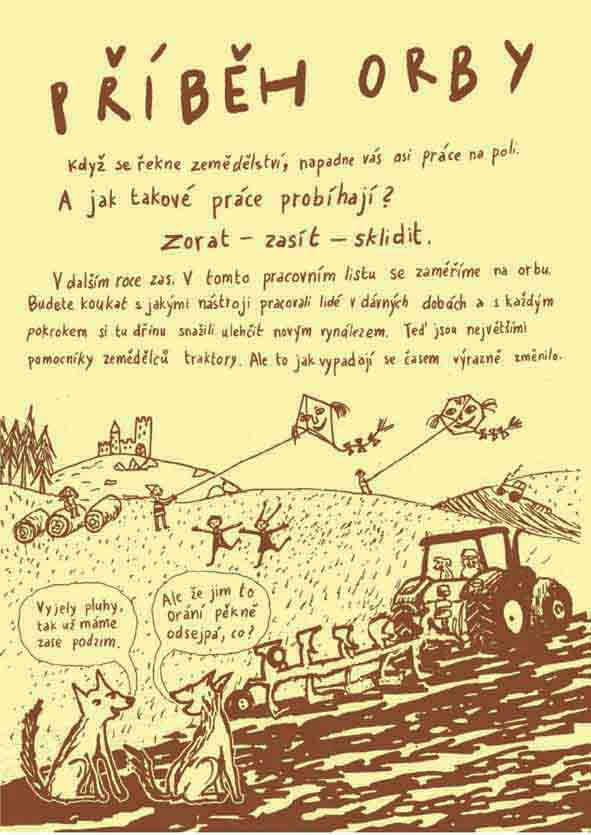 PŘÍBĚH ORBY
Když se řekne zemědělství, napadne vás asi práce na poli.
A jak takové práce probíhají?
Zorat – zasít – sklidit.
V dalším roce zas. V tomto pracovním listu se zaměříme na orbu.
Budete koukat s jakými nástroji pracovali lidé v dávných dobách a s každým
pokrokem si tu dřinu snažili ulehčit novým vynálezem. Teď jsou největšími
pomocníky zemědělců traktory. Ale to jak vypadají se časem výrazně změnilo.
Vyjely pluhy,
tak už máme
zase podzim.
Ale že jim to
orání pěkně
odsejpá, co?